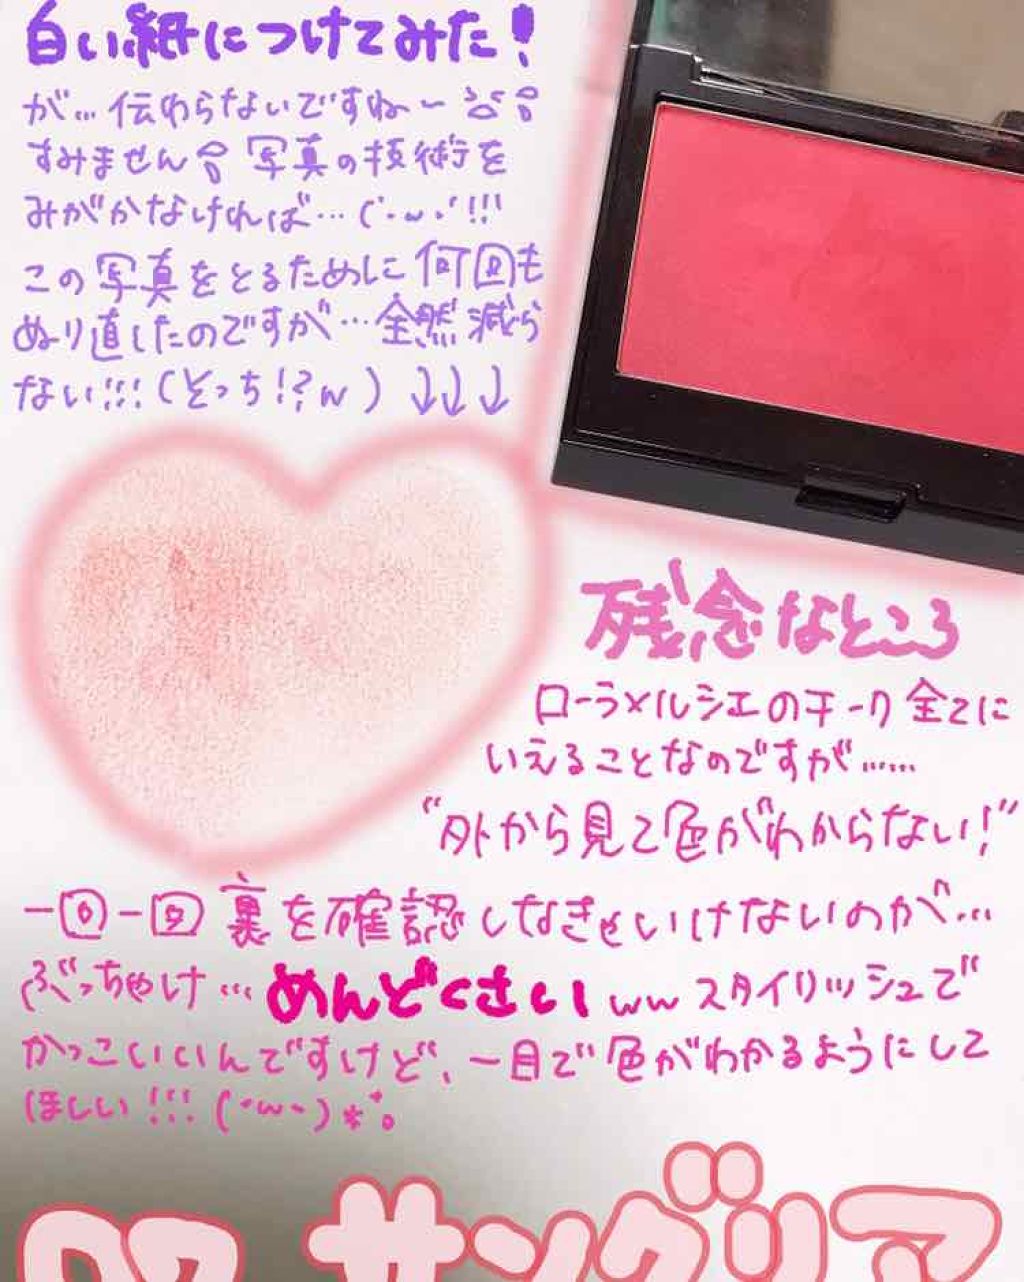 白い紙につけてみた!
が…伝わらないですね〜
すみません 写真の技術を
みがかなければ…(´・ω・`!!!
この写真をとるために何回も
ぬり直したのですが…全然減ら
ない!!!(どっち!?w)↓↓↓
残念なところ
ローラメルシエのチーク全てに
いえることなのですが……
"外から見て色がわからない!"
一回一回裏を確認しなきゃいけないのが…
ぶっちゃけ…めんどくさいwwスタイリッシュで
かっこいいんですけど、一目で色がわかるようにして
ほしい!!!(・ω・)*°。
07 サングリア